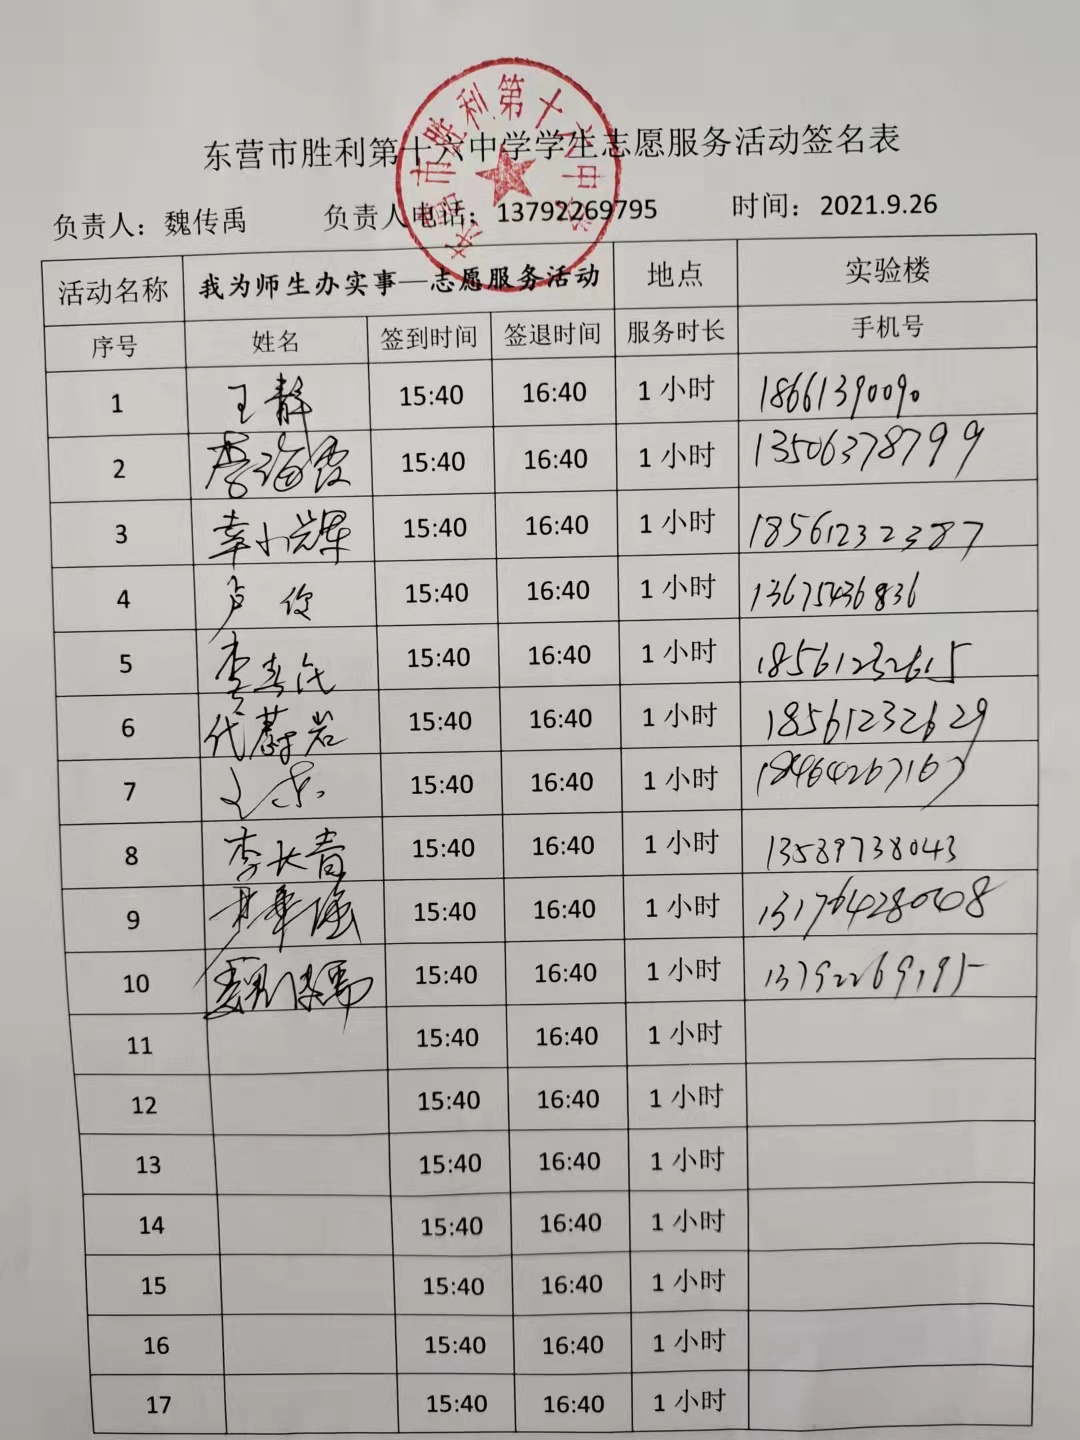 东营市胜利第十六中学
东营市胜利第十六中学学生志愿服务活动签名表
负责人：魏传禹 负责人电话：13792269795 时间：2021.9.26
活动名称 我为师生办实事—志愿服务活动 地点 实验楼
序号 姓名 签到时间 签退时间 服务时长 手机号
1 王静 15:40 16:40 1 小时 18661390090
2 李海霞 15:40 16:40 1 小时 13506378799
3 15:40 16:40 1 小时 18561232387
4 15:40 16:40 1 小时 13675436836
5 15:40 16:40 1 小时 18561232615
6 代蔚岩 15:40 16:40 1 小时 18561232629
7 15:40 16:40 1 小时 18464267167
8 李长青 15:40 16:40 1 小时 13589738043
9 15:40 16:40 1 小时 13176428008
10 魏传禹 15:40 16:40 1 小时 13792269795
11 15:40 16:40 1 小时
12 15:40 16:40 1 小时
13 15:40 16:40 1 小时
14 15:40 16:40 1 小时
15 15:40 16:40 1 小时
16 15:40 16:40 1 小时
17 15:40 16:40 1 小时